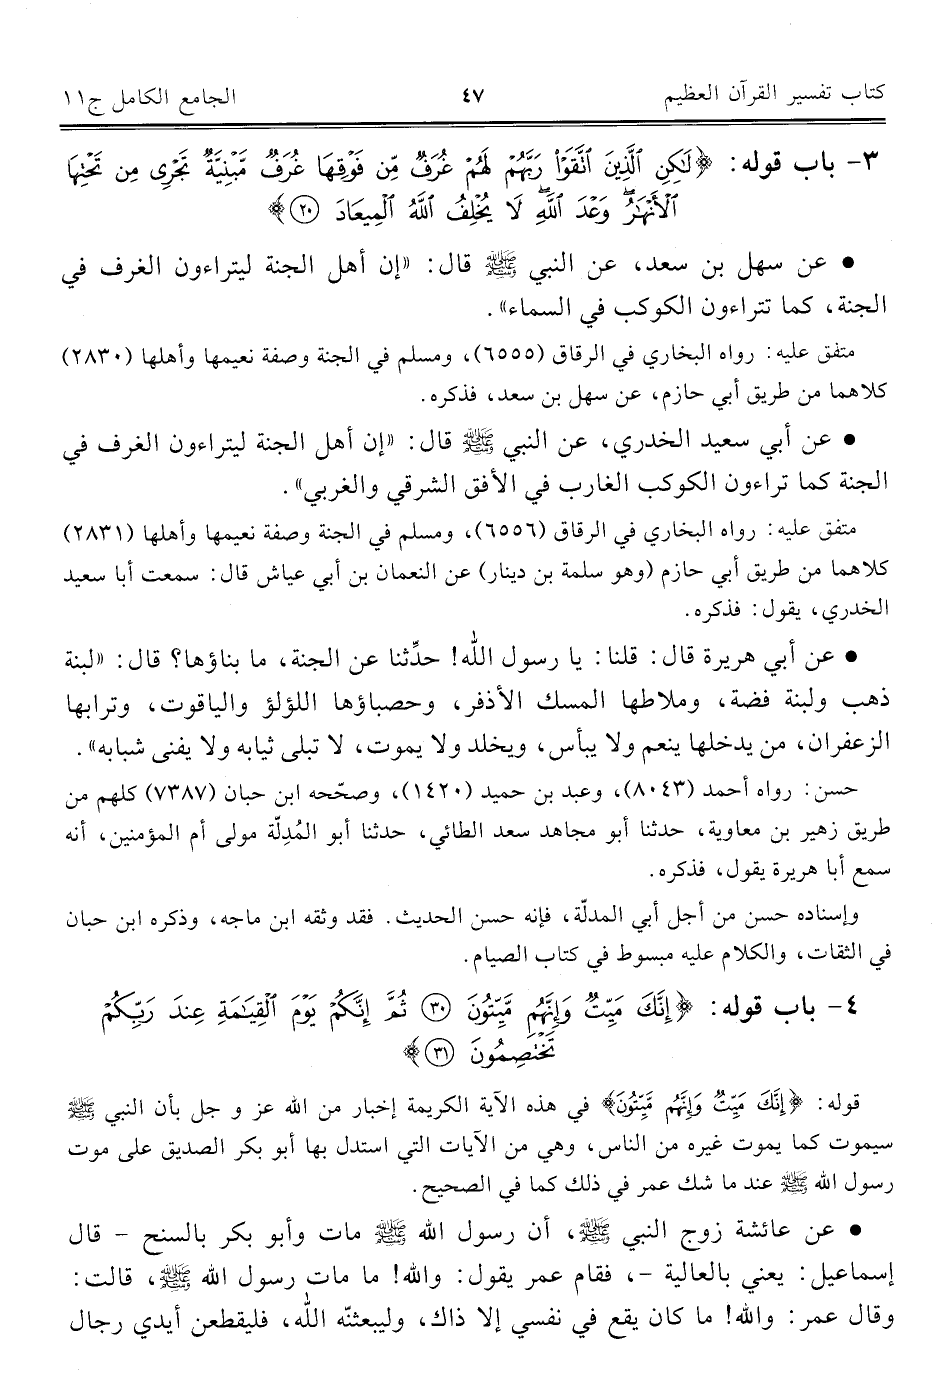 كتاب تفسير القرآن العظيم ٤٧ الجامع الكامل ج١١
٣- باب قوله: ﴿لَٰكِنِ ٱلَّذِينَ ٱتَّقَوۡاْ رَبَّهُمۡ لَهُمۡ غُرَفٞ مِّن فَوۡقِهَا غُرَفٞ مَّبۡنِيَّةٞ تَجۡرِي مِن تَحۡتِهَا
ٱلۡأَنۡهَٰرُۖ وَعۡدَ ٱللَّهِ لَا يُخۡلِفُ ٱللَّهُ ٱلۡمِيعَادَ ٢٠﴾
● عن سهل بن سعد، عن النبي ﷺ قال: «إن أهل الجنة ليتراءون الغرف في
الجنة، كما تتراءون الكوكب في السماء».
متفق عليه: رواه البخاري في الرقاق (٦٥٥٥)، ومسلم في الجنة وصفة نعيمها وأهلها (٢٨٣٠)
كلاهما من طريق أبي حازم، عن سهل بن سعد، فذكره.
● عن أبي سعيد الخدري، عن النبي ﷺ قال: «إن أهل الجنة ليتراءون الغرف في
الجنة كما تراءون الكوكب الغارب في الأفق الشرقي والغربي».
متفق عليه: رواه البخاري في الرقاق (٦٥٥٦)، ومسلم في الجنة وصفة نعيمها وأهلها (٢٨٣١)
كلاهما من طريق أبي حازم (وهو سلمة بن دينار) عن النعمان بن أبي عياش قال: سمعت أبا سعيد
الخدري، يقول: فذكره.
● عن أبي هريرة قال: قلنا: يا رسول الله! حدِّثنا عن الجنة، ما بناؤها؟ قال: «لبنة
ذهب ولبنة فضة، وملاطها المسك الأذفر، وحصباؤها اللؤلؤ والياقوت، وترابها
الزعفران، من يدخلها ينعم ولا يبأس، ويخلد ولا يموت، لا تبلى ثيابه ولا يفنى شبابه».
حسن: رواه أحمد (٨٠٤٣)، وعبد بن حميد (١٤٢٠)، وصحّحه ابن حبان (٧٣٨٧) كلهم من
طريق زهير بن معاوية، حدثنا أبو مجاهد سعد الطائي، حدثنا أبو المُدِلّة مولى أم المؤمنين، أنه
سمع أبا هريرة يقول، فذكره.
وإسناده حسن من أجل أبي المدلّة، فإنه حسن الحديث. فقد وثقه ابن ماجه، وذكره ابن حبان
في الثقات، والكلام عليه مبسوط في كتاب الصيام.
٤- باب قوله: ﴿إِنَّكَ مَيِّتٞ وَإِنَّهُم مَّيِّتُونَ ٣٠ ثُمَّ إِنَّكُمۡ يَوۡمَ ٱلۡقِيَٰمَةِ عِندَ رَبِّكُمۡ
تَخۡتَصِمُونَ ٣١﴾
قوله: ﴿إِنَّكَ مَيِّتٞ وَإِنَّهُم مَّيِّتُونَ﴾ في هذه الآية الكريمة إخبار من الله عز و جل بأن النبي ﷺ
سيموت كما يموت غيره من الناس، وهي من الآيات التي استدل بها أبو بكر الصديق على موت
رسول الله ﷺ عند ما شك عمر في ذلك كما في الصحيح.
● عن عائشة زوج النبي ﷺ، أن رسول الله ﷺ مات وأبو بكر بالسنح – قال
إسماعيل: يعني بالعالية –، فقام عمر يقول: والله! ما مات رسول الله ﷺ، قالت:
وقال عمر: والله! ما كان يقع في نفسي إلا ذاك، وليبعثنّه الله، فليقطعن أيدي رجال